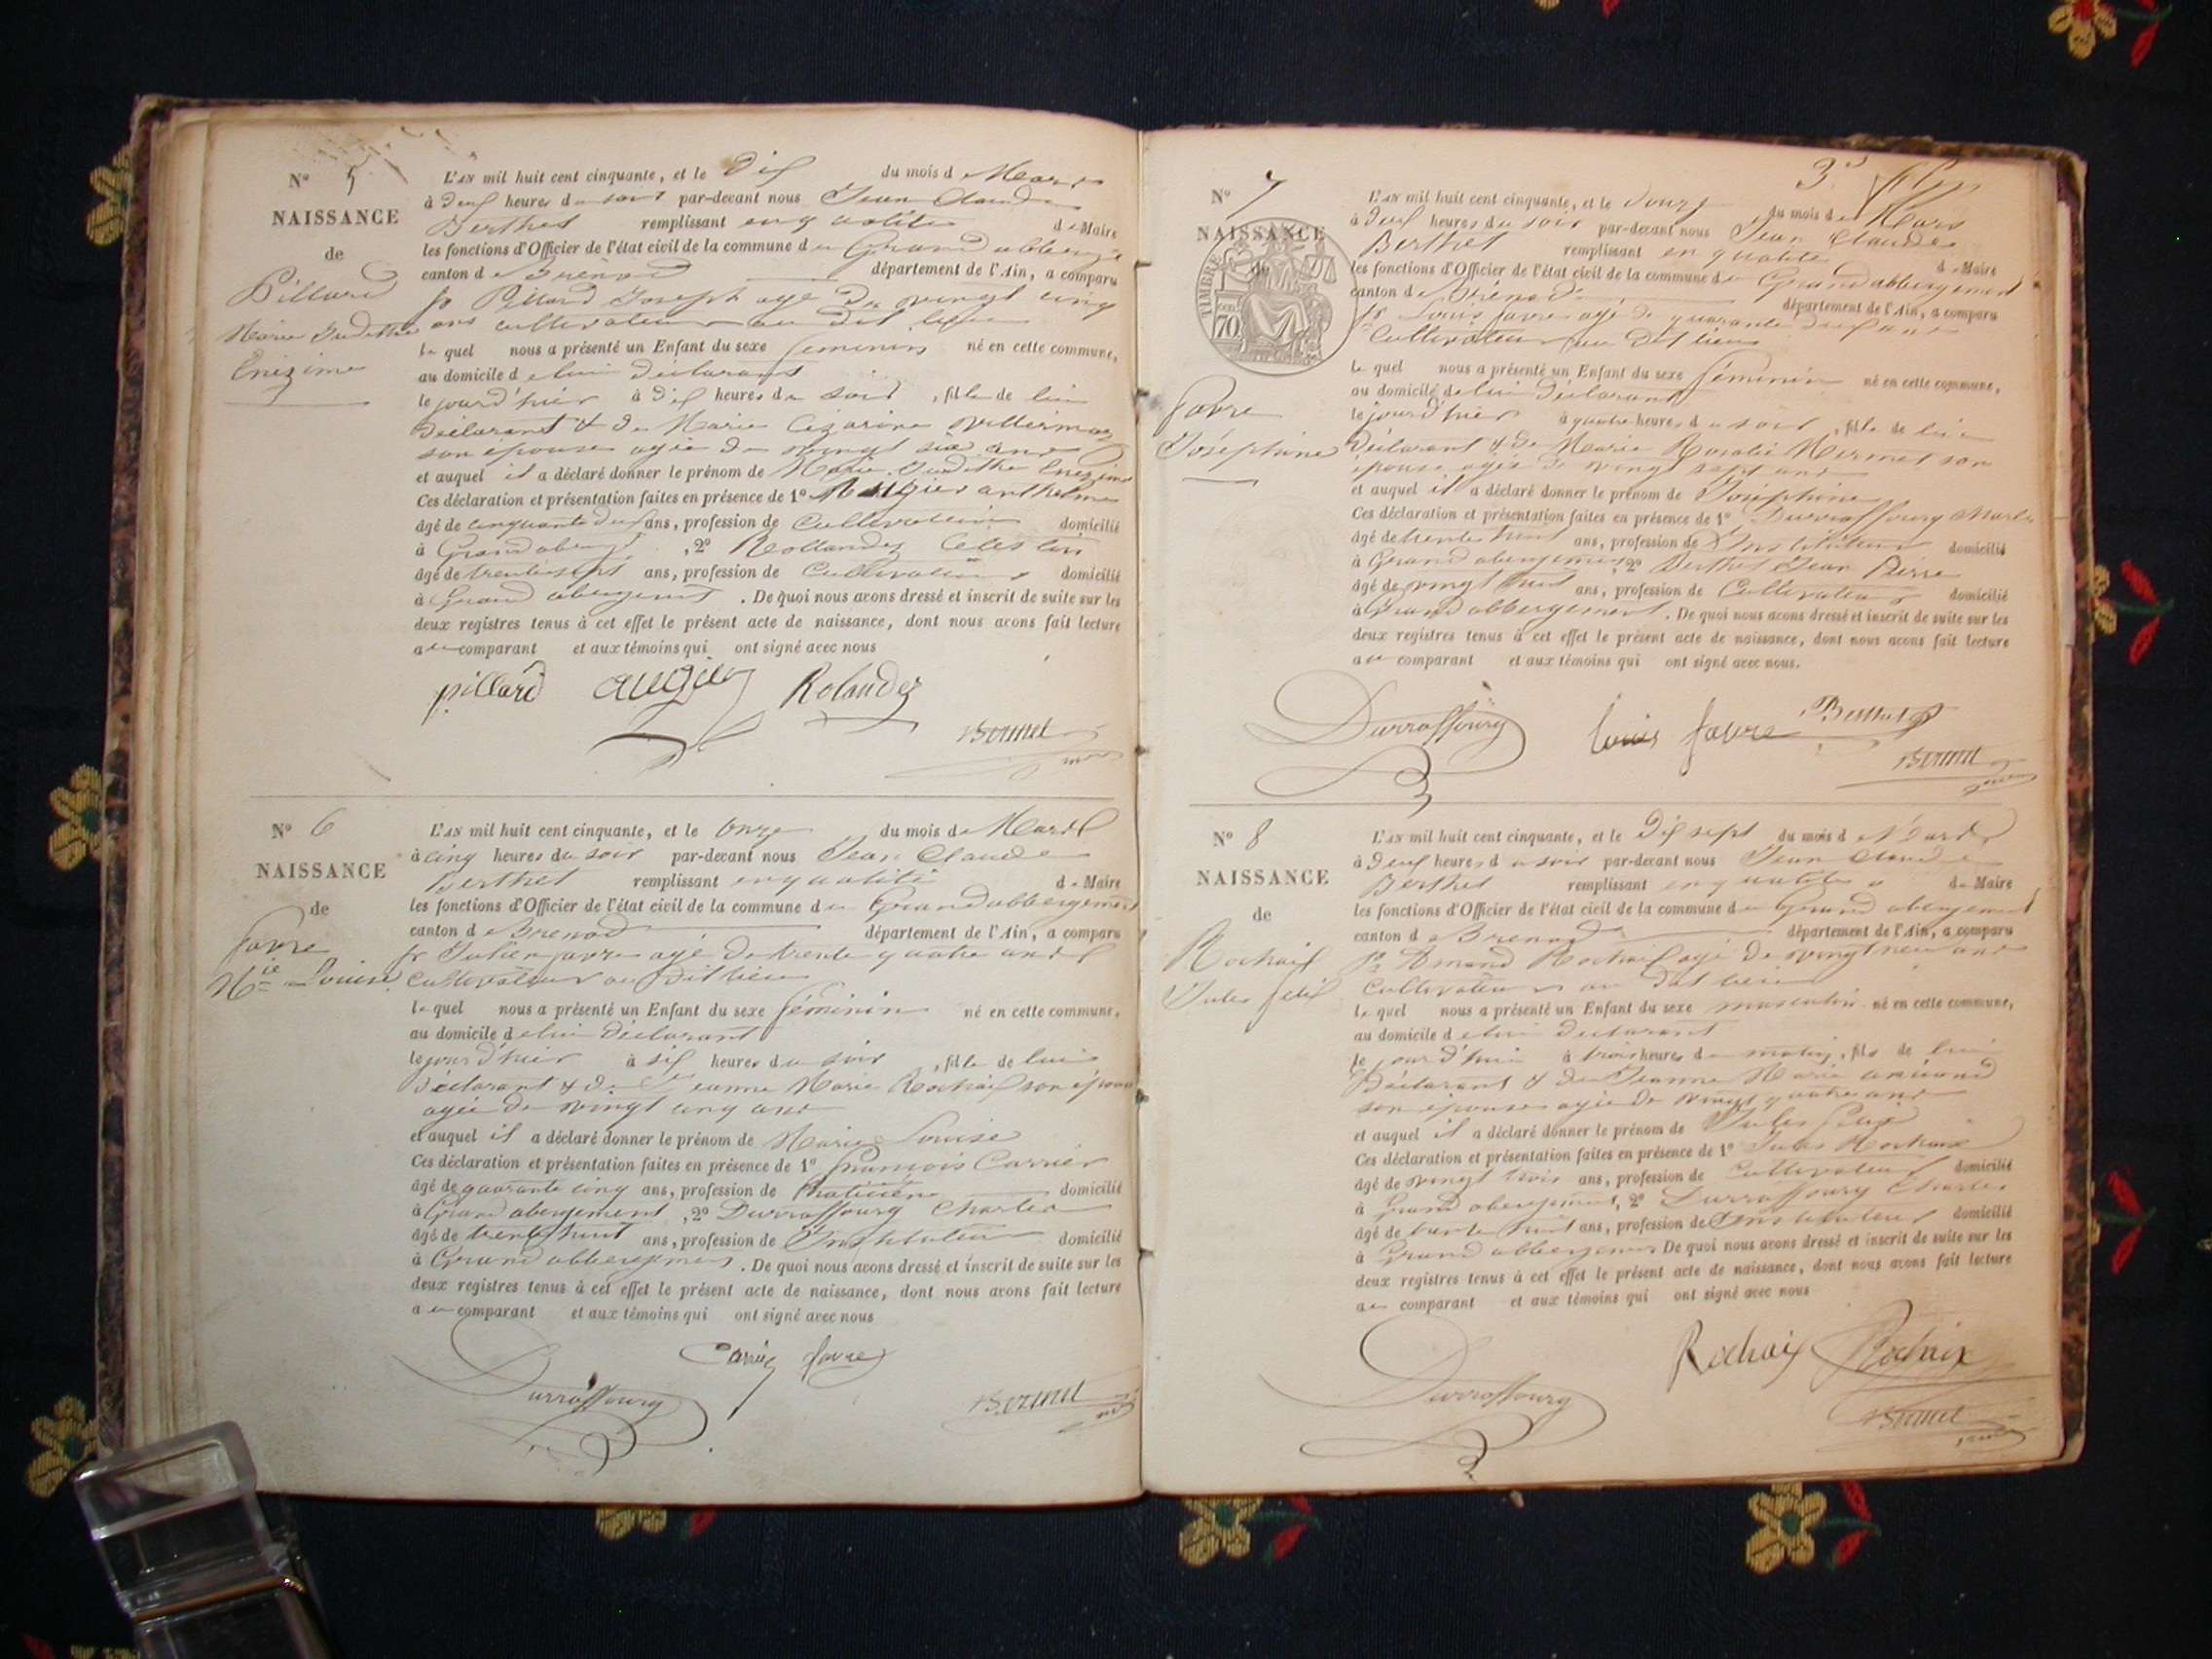 N° 5
NAISSANCE
de
Pillard
Marie Judithe
L'AN mil huit cent cinquante, et le Dix du mois de Mars
à deux heures du soir par-devant nous Jean Claude
Berthet remplissant en qualité de Maire
les fonctions d'Officier de l'état civil de la commune du Grand abberg
canton de Brénod département de l'Ain, a comparu
sr Pillard Joseph agé de vingt cinq
ans cultivateur au dit lieu
lequel nous a présenté un Enfant du sexe feminin né en cette commune,
au domicile de lui déclarant
le jour d'hier à dix heures du soir, fille de lui
déclarant & de Marie
son épouse agée de vingt six ans
et auquel il a déclaré donner le prénom de Marie Judithe
Ces déclaration et présentation faites en présence de 1° Augier anthelme
âgé de cinquante deux ans, profession de Cultivateur domicilié
à Grand aberg, 2° Rollandez Celestin
âgé de trente sept ans, profession de Cultivateur domicilié
à Grand abergement. De quoi nous avons dressé et inscrit de suite sur les
deux registres tenus à cet effet le présent acte de naissance, dont nous avons fait lecture
au comparant et aux témoins qui ont signé avec nous
pillard augier Rolandez
Berthet
N° 6
NAISSANCE
de
favre
Mie Louise
L'AN mil huit cent cinquante, et le Onze du mois de Mars
à cinq heures du soir par-devant nous Jean Claude
Berthet remplissant en qualité de Maire
les fonctions d'Officier de l'état civil de la commune du Grand abbergement
canton de Brenod département de l'Ain, a comparu
sr Julien favre agé de trente quatre ans
Cultivateur au dit lieu
lequel nous a présenté un Enfant du sexe féminin né en cette commune,
au domicile de lui déclarant
le jour d'hier à six heures du soir, fille de lui
déclarant & de Jeanne Marie Rochaix son épouse
agée de vingt cinq ans
et auquel il a déclaré donner le prénom de Marie Louise
Ces déclaration et présentation faites en présence de 1° françois Carrier
âgé de quarante cinq ans, profession de domicilié
à Grand abergement, 2° Durraffourg Charles
âgé de trente huit ans, profession de Instituteur domicilié
à Grand abbergement. De quoi nous avons dressé et inscrit de suite sur les
deux registres tenus à cet effet le présent acte de naissance, dont nous avons fait lecture
au comparant et aux témoins qui ont signé avec nous
Carrier favre
Durraffourg
Berthet
3e
N° 7
NAISSANCE
de
TIMBRE
70
favre
Joséphine
L'AN mil huit cent cinquante, et le douze du mois de Mars
à deux heures du soir par-devant nous Jean Claude
Berthet remplissant en qualité de Maire
les fonctions d'Officier de l'état civil de la commune du Grand abbergement
canton de Brénod département de l'Ain, a comparu
sr Louis favre agé de quarante deux ans
Cultivateur au dit lieu
lequel nous a présenté un Enfant du sexe féminin né en cette commune,
au domicile de lui déclarant
le jour d'hier à quatre heures du soir, fille de lui
déclarant & de Marie Rosalie Mermet son
épouse agée de vingt sept ans
et auquel il a déclaré donner le prénom de Joséphine
Ces déclaration et présentation faites en présence de 1° Durraffourg Charles
âgé de trente huit ans, profession de Instituteur domicilié
à Grand abergement, 2° Berthet Jean Pierre
âgé de vingt huit ans, profession de Cultivateur domicilié
à Grand abbergement. De quoi nous avons dressé et inscrit de suite sur les
deux registres tenus à cet effet le présent acte de naissance, dont nous avons fait lecture
au comparant et aux témoins qui ont signé avec nous.
Durraffourg Louis favre Berthet
Berthet
N° 8
NAISSANCE
de
Rochaix
Jules felix
L'AN mil huit cent cinquante, et le Dix sept du mois de Mars
à deux heures du soir par-devant nous Jean Claude
Berthet remplissant en qualité de Maire
les fonctions d'Officier de l'état civil de la commune du Grand abergement
canton de Brenod département de l'Ain, a comparu
sr Amand Rochaix agé de vingt neuf ans
Cultivateur au dit lieu
lequel nous a présenté un Enfant du sexe masculin né en cette commune,
au domicile de lui déclarant
le jour d'hui à trois heures du matin, fils de lui
Déclarant & de Jeanne Marie
son épouse agée de vingt quatre ans
et auquel il a déclaré donner le prénom de Jules felix
Ces déclaration et présentation faites en présence de 1° Jules Rochaix
âgé de vingt trois ans, profession de Cultivateur domicilié
à Grand abergement, 2° Durraffourg Charles
âgé de trente huit ans, profession de Instituteur domicilié
à Grand abbergement De quoi nous avons dressé et inscrit de suite sur les
deux registres tenus à cet effet le présent acte de naissance, dont nous avons fait lecture
au comparant et aux témoins qui ont signé avec nous
Rochaix Rochaix
Durraffourg
Berthet